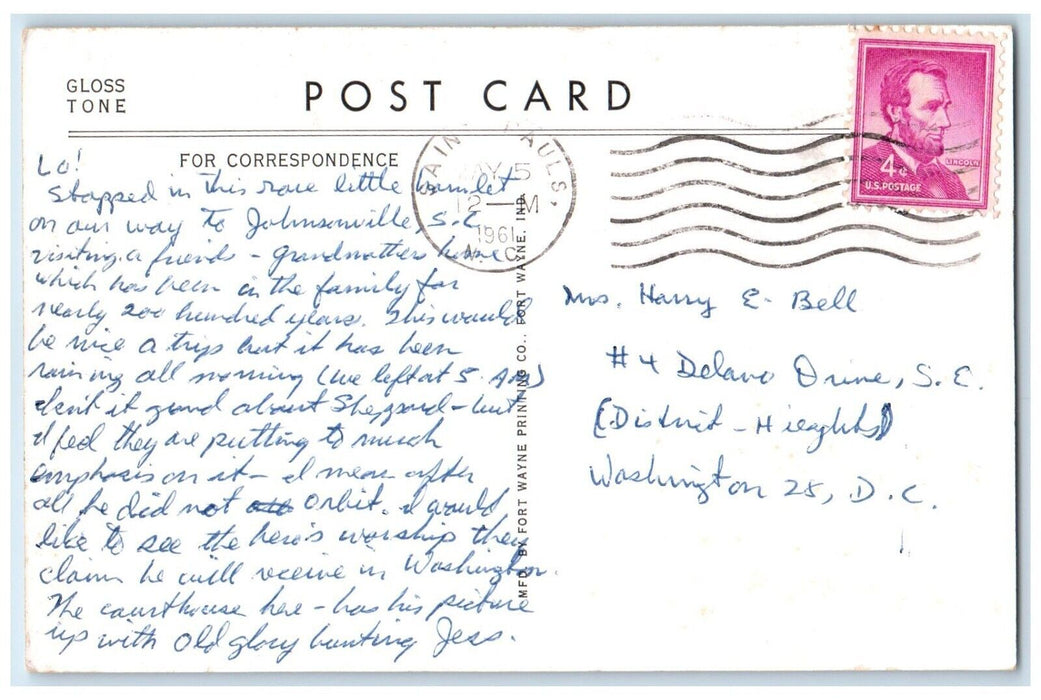 GLOSS
TONE
POST CARD
FOR CORRESPONDENCE
SAIN AULS.
MAY 5
12 — M
1961
N. C.
4¢
LINCOLN
U.S. POSTAGE
Lo!
Stopped in this rare little hamlet
on our way to Johnsonville, S.C.
visiting a friends - grandmothers home
which has been in the family for
nearly 200 hundred years. This would
be nice a trip but it has been
raining all morning (we left at 5. AM)
Isn't it grand about Sheppard - but
I feel they are putting to much
emphasis on it - I mean after
all he did not orbit. I would
like to see the hero's worship they
claim he will receive in Washington.
The courthouse here - has his picture
up with old glory bunting Jess.
MFD. BY FORT WAYNE PRINTING CO., FORT WAYNE, IND.
Mrs. Harry E. Bell
#4 Delano Drive, S.E.
(District - Hieghts)
Washington 28, D.C.